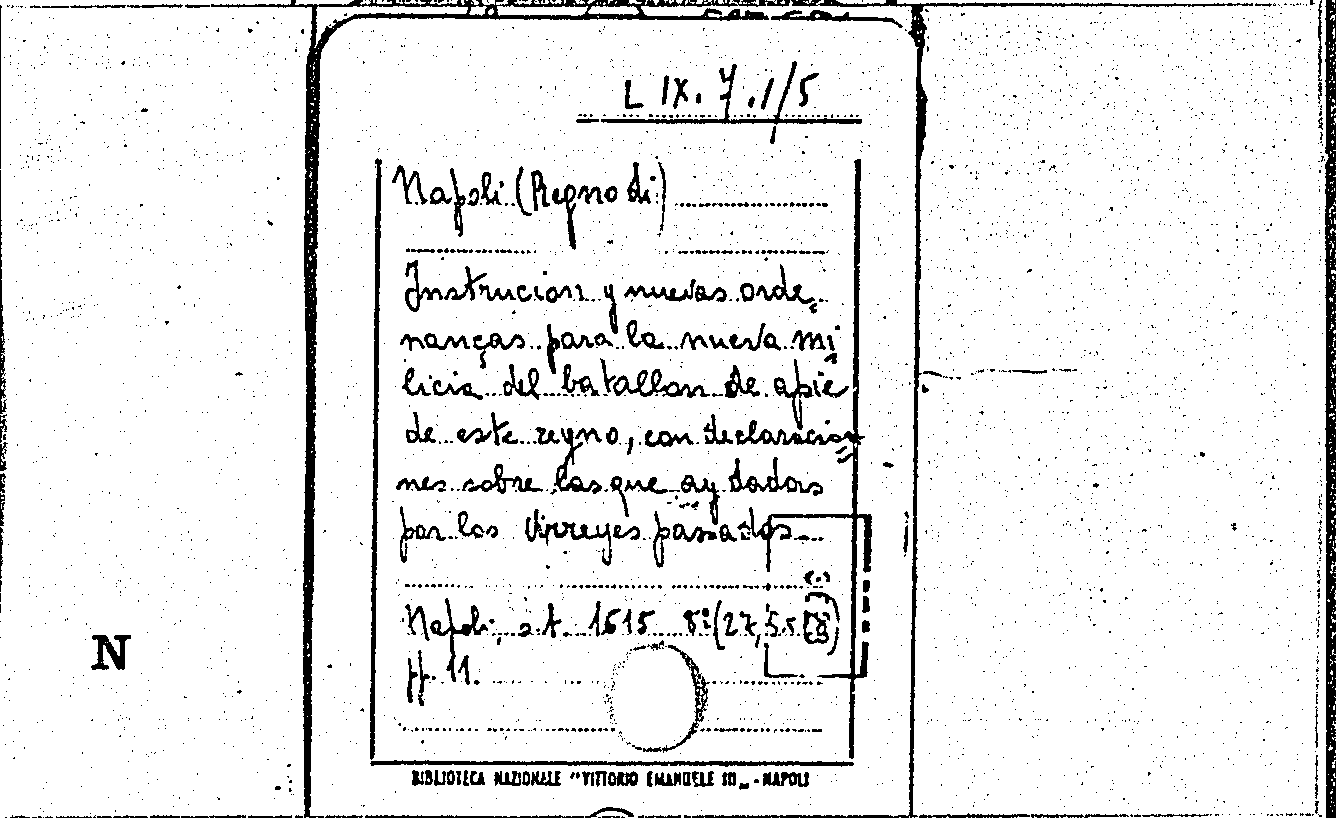 L IX. 7.1/5
Napoli (Regno di)
Instrucion y nuevas orde=
nanças para la nueva mi=
licia del batallon de apie
de este reyno, con declaracio=
nes sobre las que ay dadas
por los Virreyes passados
Napoli, s.t. 1615 8º (27,5x
ff. 11.
N
BIBLIOTECA NAZIONALE "VITTORIO EMANUELE III„ - NAPOLI